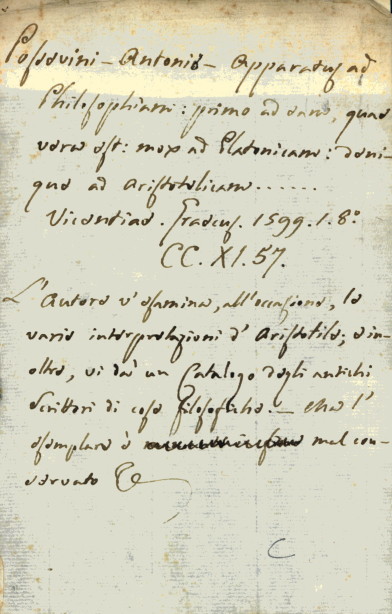 Possevini - Antonio - Apparatus ad
Philosophiam: primo ad eam, quae
vera est: mox ad Platonicam: deni-
que ad Aristotelicam......
Vicentiae. Graecus. 1599. 1. 8.°
CC. XI. 57.
L'Autore v'esamina, all'occasione, le
varie interpretazioni d'Aristotile; e in-
oltre, vi dà un Catalogo degli antichi
Scrittori di cose filosofiche. - Ma l'
esemplare è mal con-
servato